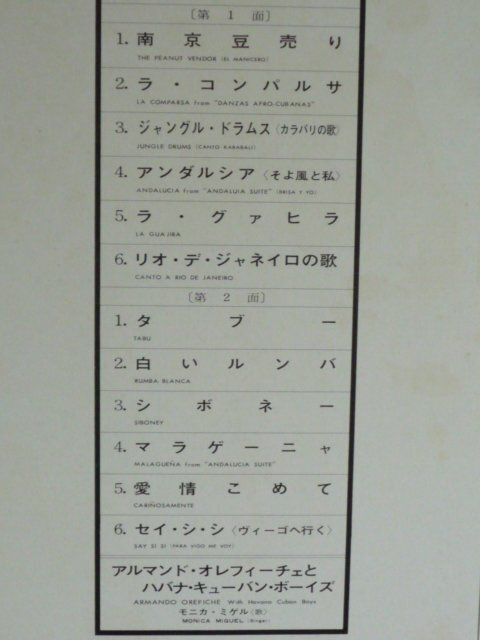 〔第 1 面〕
1. 南京豆売り
THE PEANUT VENDOR (EL MANICERO)
2. ラ・コンパルサ
LA COMPARSA from "DANZAS AFRO-CUBANAS"
3. ジャングル・ドラムス〈カラバリの歌〉
JUNGLE DRUMS (CANTO KARABALI)
4. アンダルシア〈そよ風と私〉
ANDALUCIA from "ANDALUIA SUITE" (BRISA Y YO)
5. ラ・グァヒラ
LA GUAJIRA
6. リオ・デ・ジャネイロの歌
CANTO A RIO DE JANEIRO
〔第 2 面〕
1. タブー
TABU
2. 白いルンバ
RUMBA BLANCA
3. シボネー
SIBONEY
4. マラゲーニャ
MALAGUEÑA from "ANDALUCIA SUITE"
5. 愛情こめて
CARIÑOSAMENTE
6. セイ・シ・シ〈ヴィーゴへ行く〉
SAY SI SI (PARA VIGO ME VOY)
アルマンド・オレフィーチェと
ハバナ・キューバン・ボーイズ
ARMANDO OREFICHE With Havana Cuban Boys
モニカ・ミゲル〈歌〉
MONICA MIGUEL (Singer)